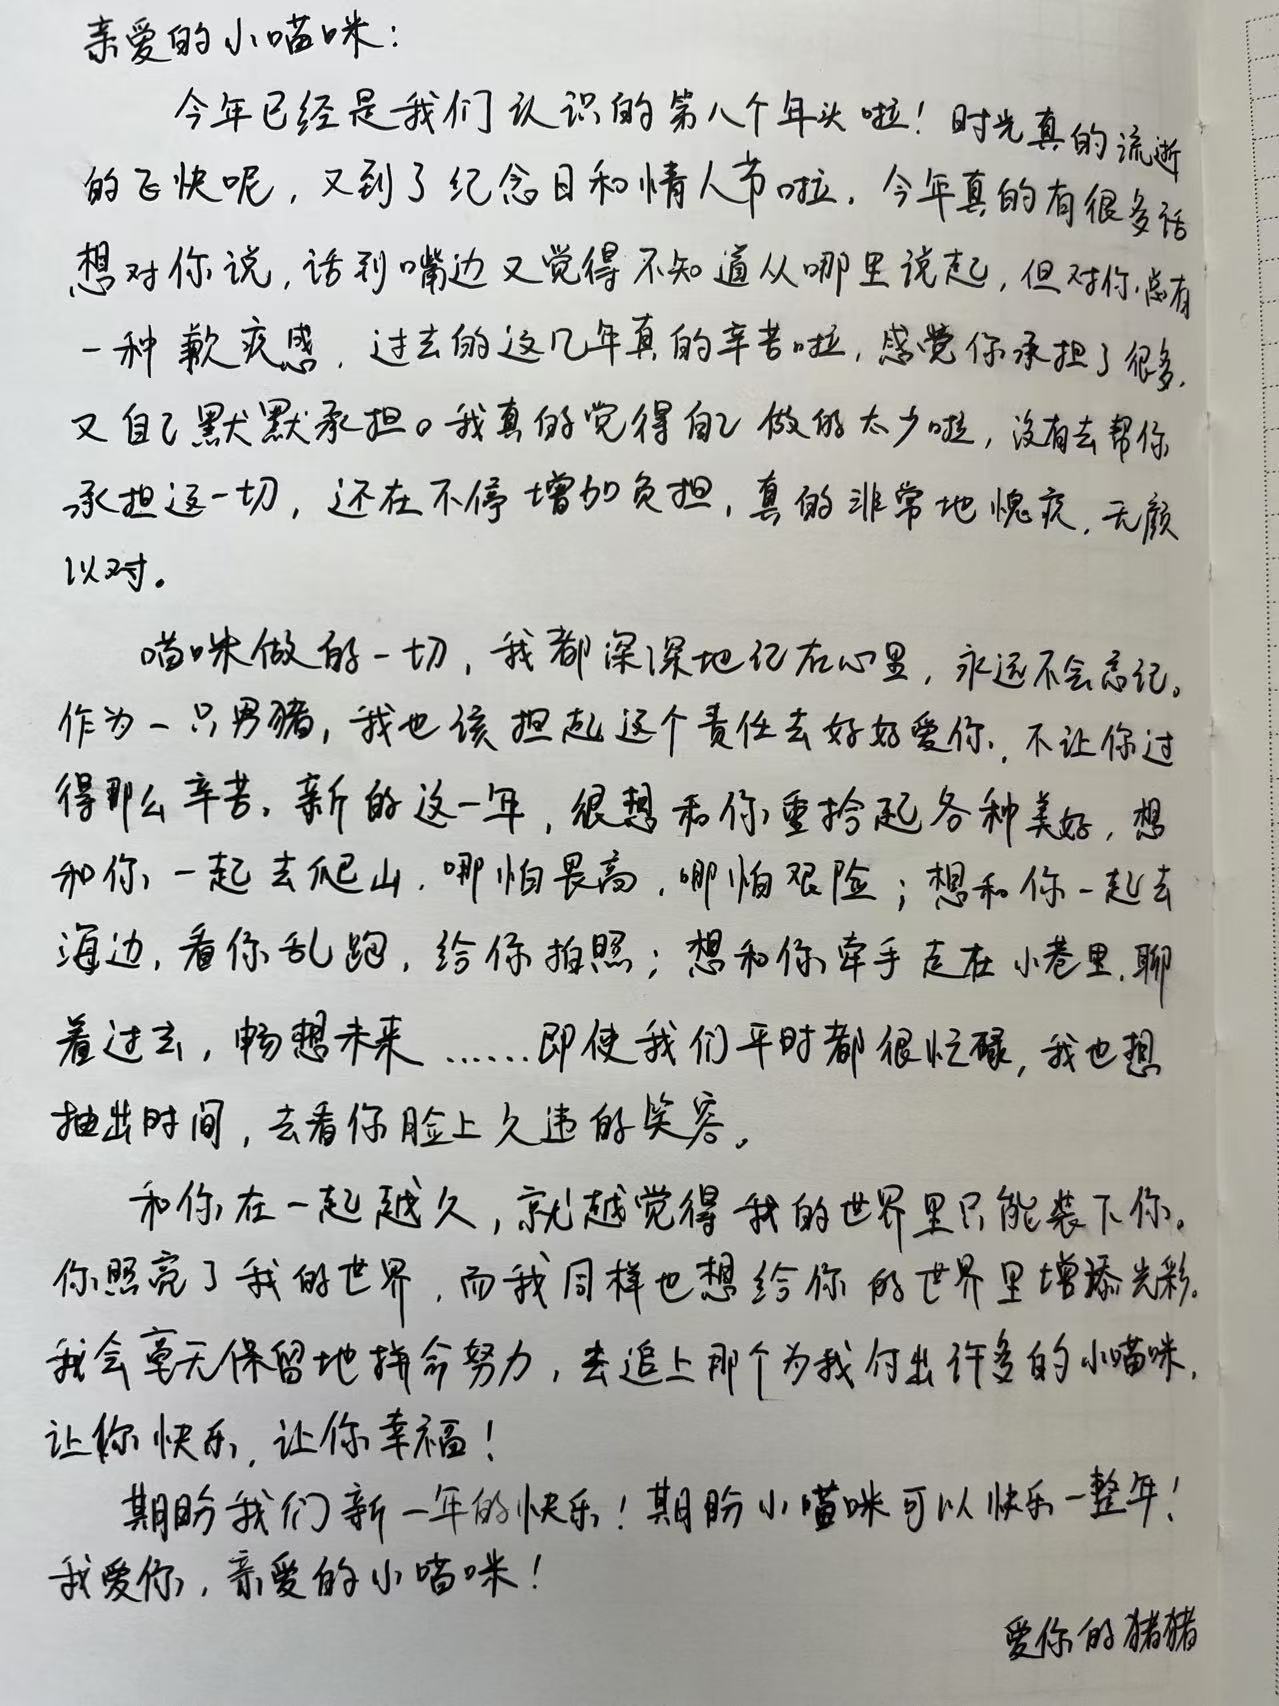 亲爱的小喵咪：
今年已经是我们认识的第八个年头啦！时光真的流逝
的飞快呢，又到了纪念日和情人节啦，今年真的有很多话
想对你说，话到嘴边又觉得不知道从哪里说起，但对你总有
一种歉疚感，过去的这几年真的辛苦啦，感觉你承担了很多，
又自己默默承担。我真的觉得自己做的太少啦，没有去帮你
承担这一切，还在不停增加负担，真的非常地愧疚，无颜
以对。
喵咪做的一切，我都深深地记在心里，永远不会忘记。
作为一只男猪，我也该担起这个责任去好好爱你，不让你过
得那么辛苦。新的这一年，很想和你重拾起各种美好，想
和你一起去爬山，哪怕畏高，哪怕艰险；想和你一起去
海边，看你乱跑，给你拍照；想和你牵手走在小巷里，聊
着过去，畅想未来……即使我们平时都很忙碌，我也想
抽出时间，去看你脸上久违的笑容。
和你在一起越久，就越觉得我的世界里只能装下你。
你照亮了我的世界，而我同样也想给你的世界里增添光彩。
我会毫无保留地拼命努力，去追上那个为我付出许多的小喵咪，
让你快乐，让你幸福！
期盼我们新一年的快乐！期盼小喵咪可以快乐一整年！
我爱你，亲爱的小喵咪！
爱你的猪猪